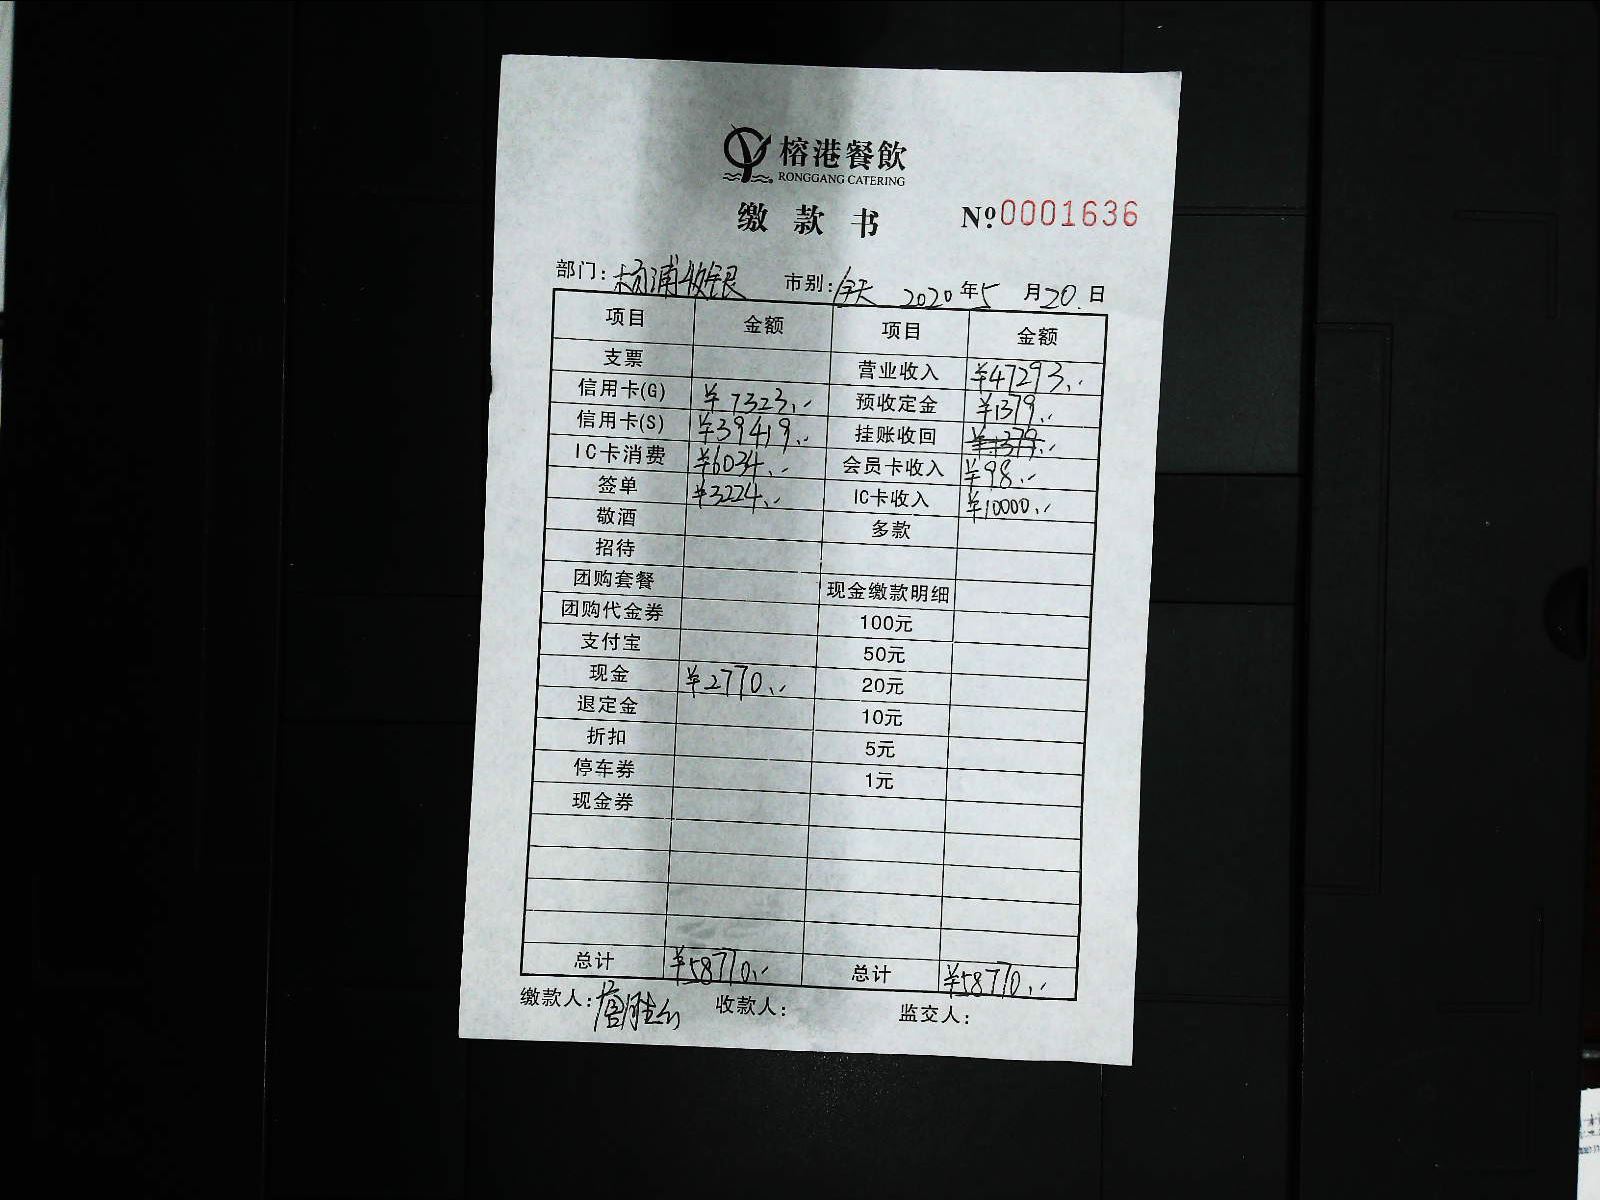 榕港餐飲
RONGGANG CATERING
缴款书 №0001636
部门:杨浦收银 市别:全天 2020年5月20日
项目 金额 项目 金额
支票 营业收入 ¥47293.-
信用卡(G) ¥7323.- 预收定金 ¥1379.-
信用卡(S) ¥39419.- 挂账收回
IC卡消费 ¥6034.- 会员卡收入 ¥98.-
签单 ¥3224.- IC卡收入 ¥10000.-
敬酒 多款
招待
团购套餐 现金缴款明细
团购代金券 100元
支付宝 50元
现金 ¥2770.- 20元
退定金 10元
折扣 5元
停车券 1元
现金券
总计 ¥58770.- 总计 ¥58770.-
缴款人: 收款人: 监交人: